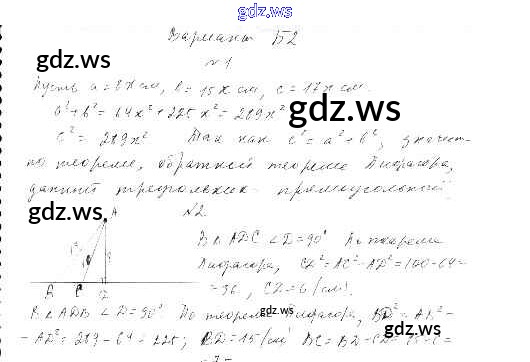 gdz.ws
Вариант Б2
№1.
gdz.ws
Пусть a = 8x см, b = 15x см, c = 17x см.
a² + b² = 64x² + 225x² = 289x²
gdz.ws
c² = 289x² Так как c² = a² + b², значит-
по теореме, обратной теореме Пифагора,
данный треугольник - прямоугольный
gdz.ws
A
№2.
В ΔADC ∠D = 90° По теореме
Пифагора, CD² = AC² - AD² = 100 - 64 =
= 36, CD = 6 (см).
B C D
gdz.ws
В ΔADB ∠D = 90° По теореме Пифагора, BD² = AB² -
- AD² = 289 - 64 = 225; BD = 15 (см) BC = BD - CD =
gdz.ws